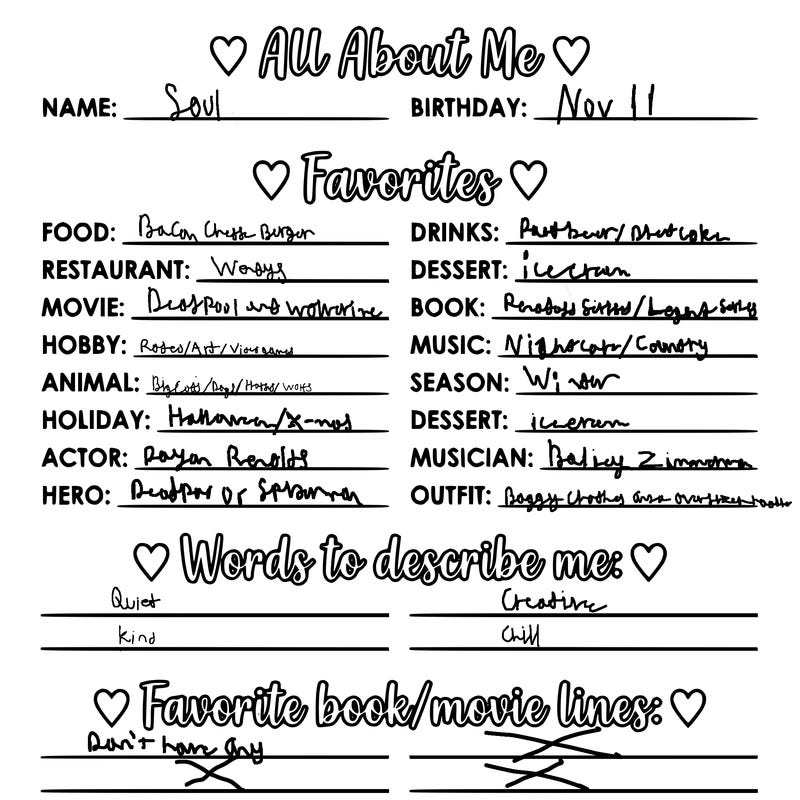 ♡ All About Me ♡
NAME: Soul BIRTHDAY: Nov 11
♡ Favorites ♡
FOOD: Bacon Chesse Burger DRINKS: /Diet coke
RESTAURANT: DESSERT: icecream
MOVIE: Deadpool and wolverine BOOK:
HOBBY: Rodeo/Art/Videogames MUSIC: Nightcore/Country
ANIMAL: Big cats/Dogs/ SEASON: Winter
HOLIDAY: Halloween/X-mas DESSERT: icecream
ACTOR: MUSICIAN: Zimmerman
HERO: or OUTFIT: Baggy clothes and oversized
♡ Words to describe me: ♡
Quiet Creative
Kind Chill
♡ Favorite book/movie lines: ♡
Don't have any